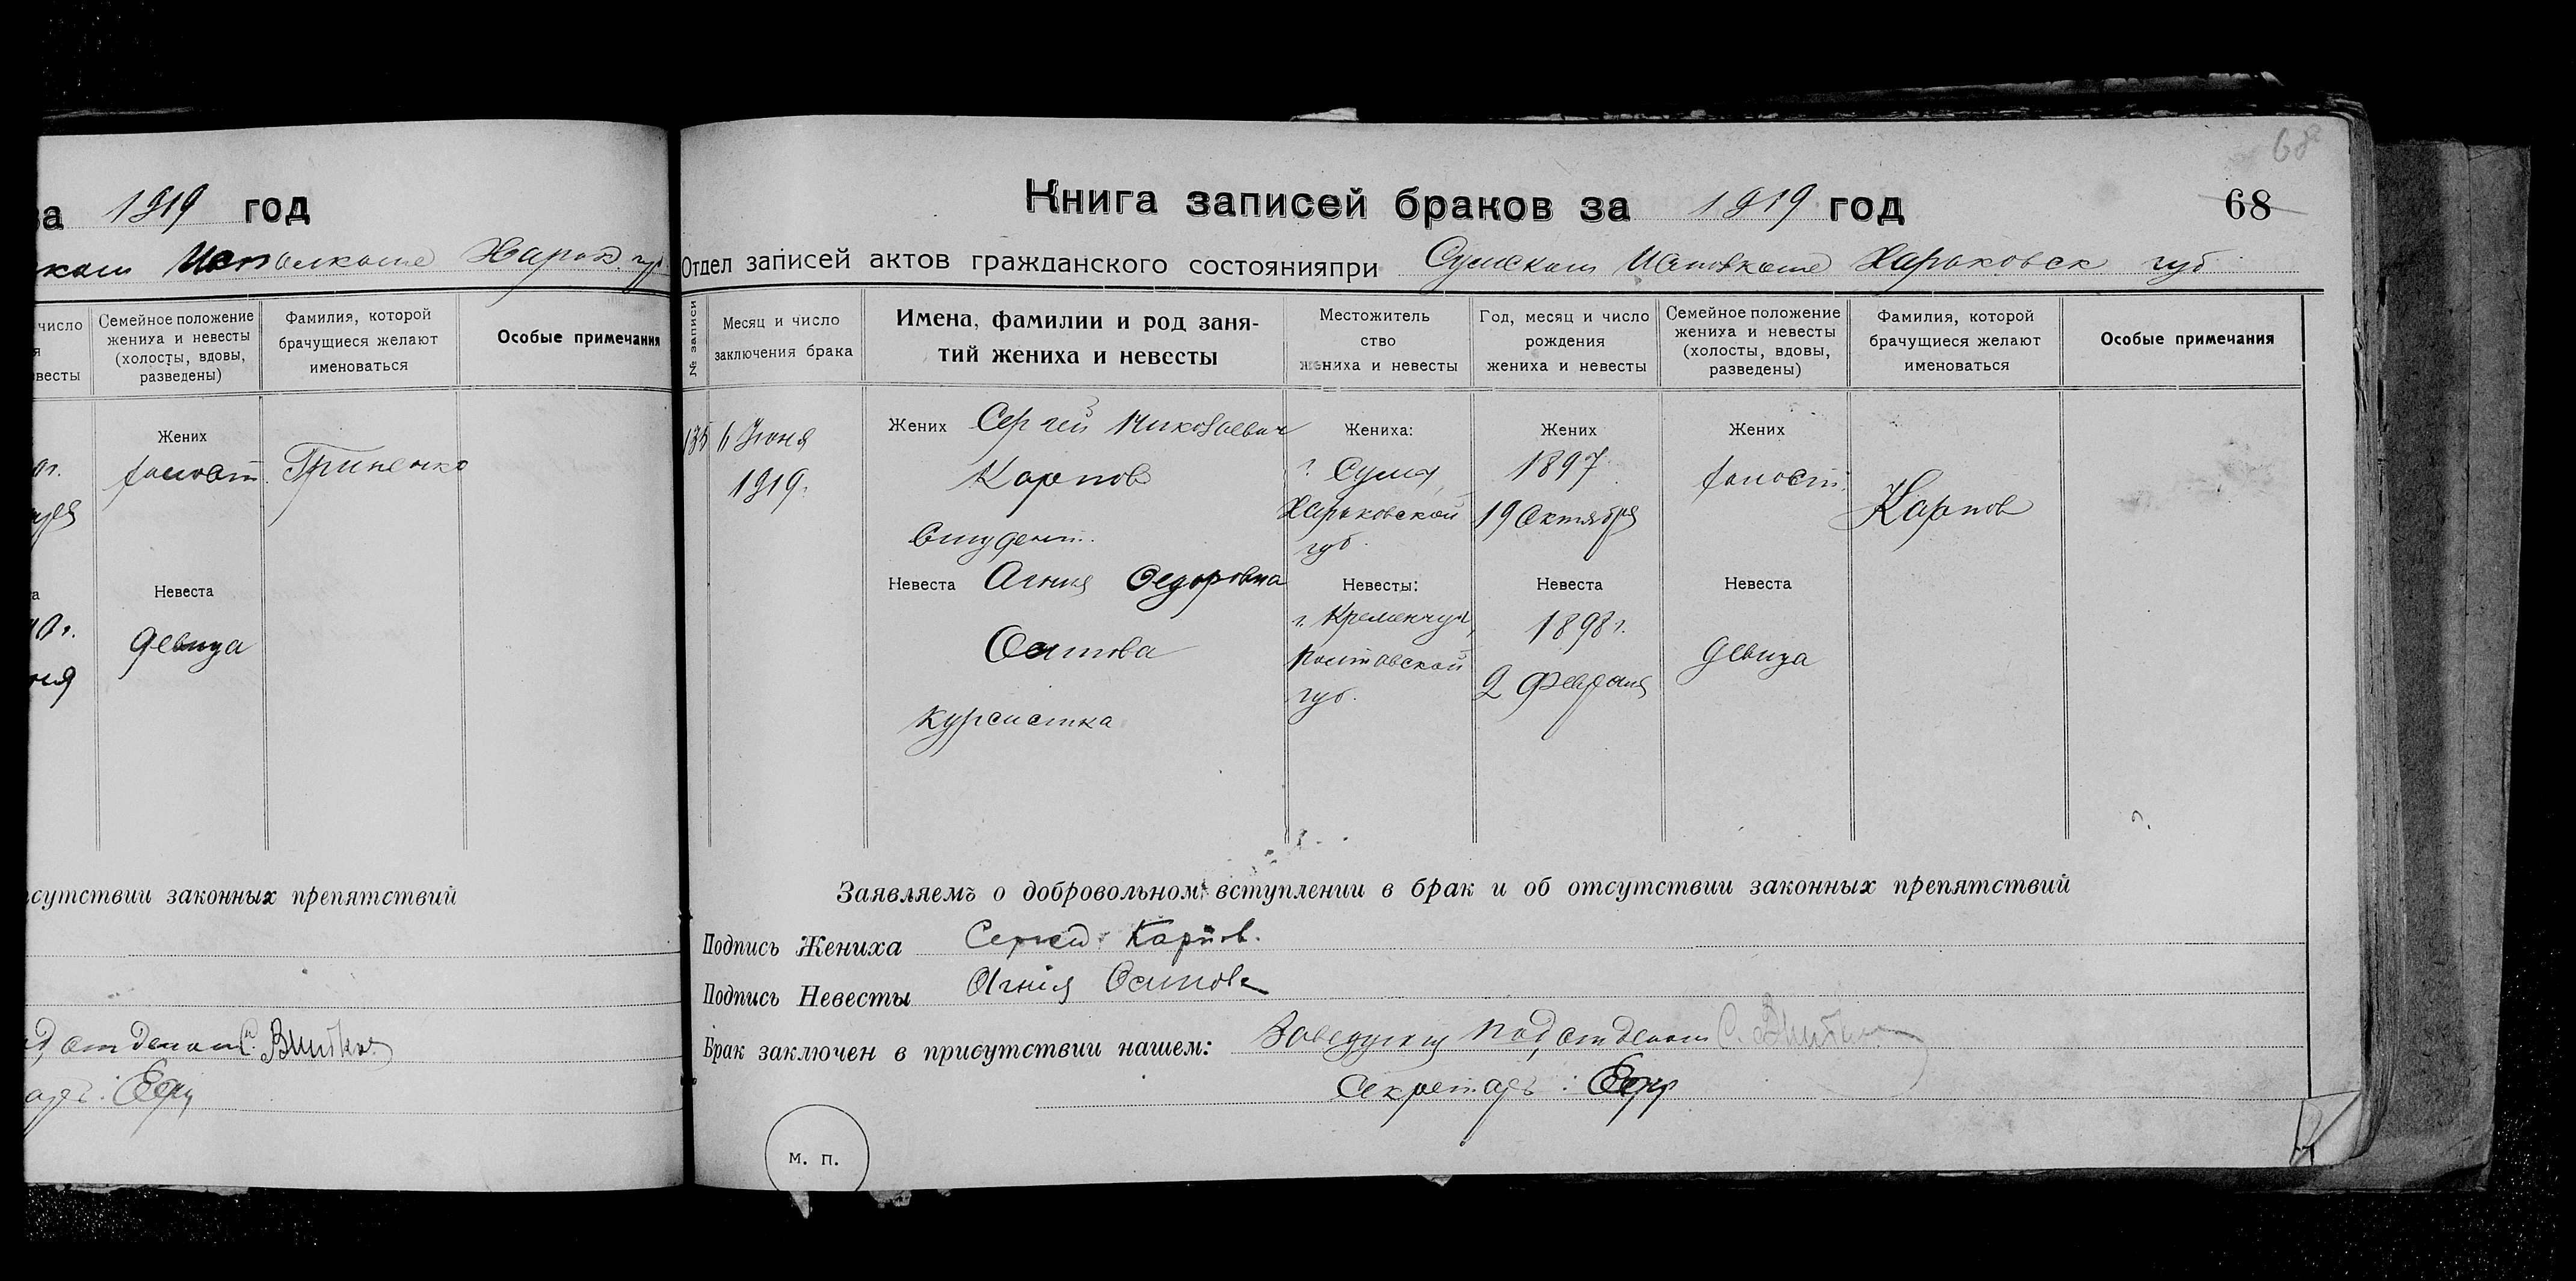 за 1919 год
ском Исполкоме Харьк. губ
число
я
весты
Семейное положение
жениха и невесты
(холосты, вдовы,
разведены)
Фамилия, которой
брачущиеся желают
именоваться
Особые примечания
Жених
холост.
Гриненко
Невеста
девица
0 г.
сутствии законных препятствий
отделом С.
68
Книга записей браков за 1919 год
68
Отдел записей актов гражданского состоянияпри Сумском Исполкоме Харьковск губ
№ записи
Месяц и число
заключения брака
Имена, фамилии и род заня-
тий жениха и невесты
Местожитель
ство
жениха и невесты
Год, месяц и число
рождения
жениха и невесты
Семейное положение
жениха и невесты
(холосты, вдовы,
разведены)
Фамилия, которой
брачущиеся желают
именоваться
Особые примечания
135
6 Июня
1919.
Жених Сергей Николаевич
Карпов
Студент.
Жениха:
г. Сумы,
Харьковской
губ.
Жених
1897
19 Октября
Жених
холост.
Карпов
Невеста Агния Федоровна
Осипова
курсистка
Невесты:
г. Кременчуг,
Полтавской
губ.
Невеста
1898 г.
2 Февраля
Невеста
девица
Заявляемъ о добровольном вступлении в брак и об отсутствии законных препятствий
Подпись Жениха Сергей Карпов.
Подпись Невесты Агнія Осипова
Брак заключен в присутствии нашем: Заведующ Под,отделом С.
Секретарь:
м. п.